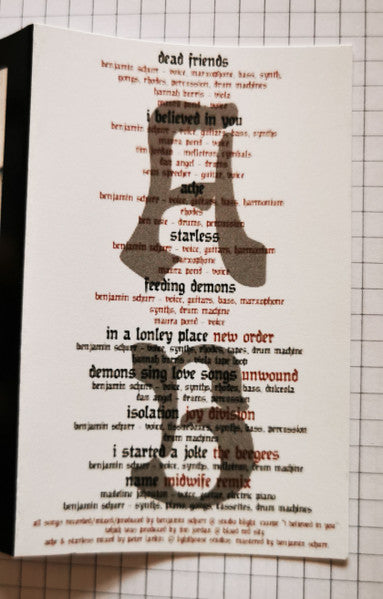 dead friends
benjamin schurr - voice, marxophone, bass, synth,
gongs, rhodes, percussion, drum machines
hannah burris - viola
maura pond - voice
i believed in you
benjamin schurr - voice, guitars, bass, synths
maura pond - voice
tim jordan - mellotron, cymbals
dan angel - drums
sean sprecher - guitar, voice
ache
benjamin schurr - voice, guitars, bass, harmonium
rhodes
ben rose - drums, percussion
starless
benjamin schurr - voice, guitars, harmonium
marxophone
maura pond - voice
feeding demons
benjamin schurr - voice, guitars, bass, marxophone
synths, drum machine
maura pond - voice
in a lonley place new order
benjamin schurr - voice, synths, rhodes, tapes, drum machine
hannah burris - viola tape loop
demons sing love songs unwound
benjamin schurr - voice, synths, rhodes, bass, dulceola
dan angel - drums, percussion
isolation joy division
benjamin schurr - voice, guitars, synths, bass, percussion
drum machines
i started a joke the beegees
benjamin schurr - voice, synths, mellotron, drum machine
name midwife remix
madeline johnston - voice, guitar, electric piano
benjamin schurr - synths, piano, gongs, cassettes, drum machines
all songs recorded/mixed/produced by benjamin schurr @ studio blight except "i believed in you"
which was produced by tim jordan @
ache & starless mixed by peter larkin @ lighthouse studios mastered by benjamin schurr